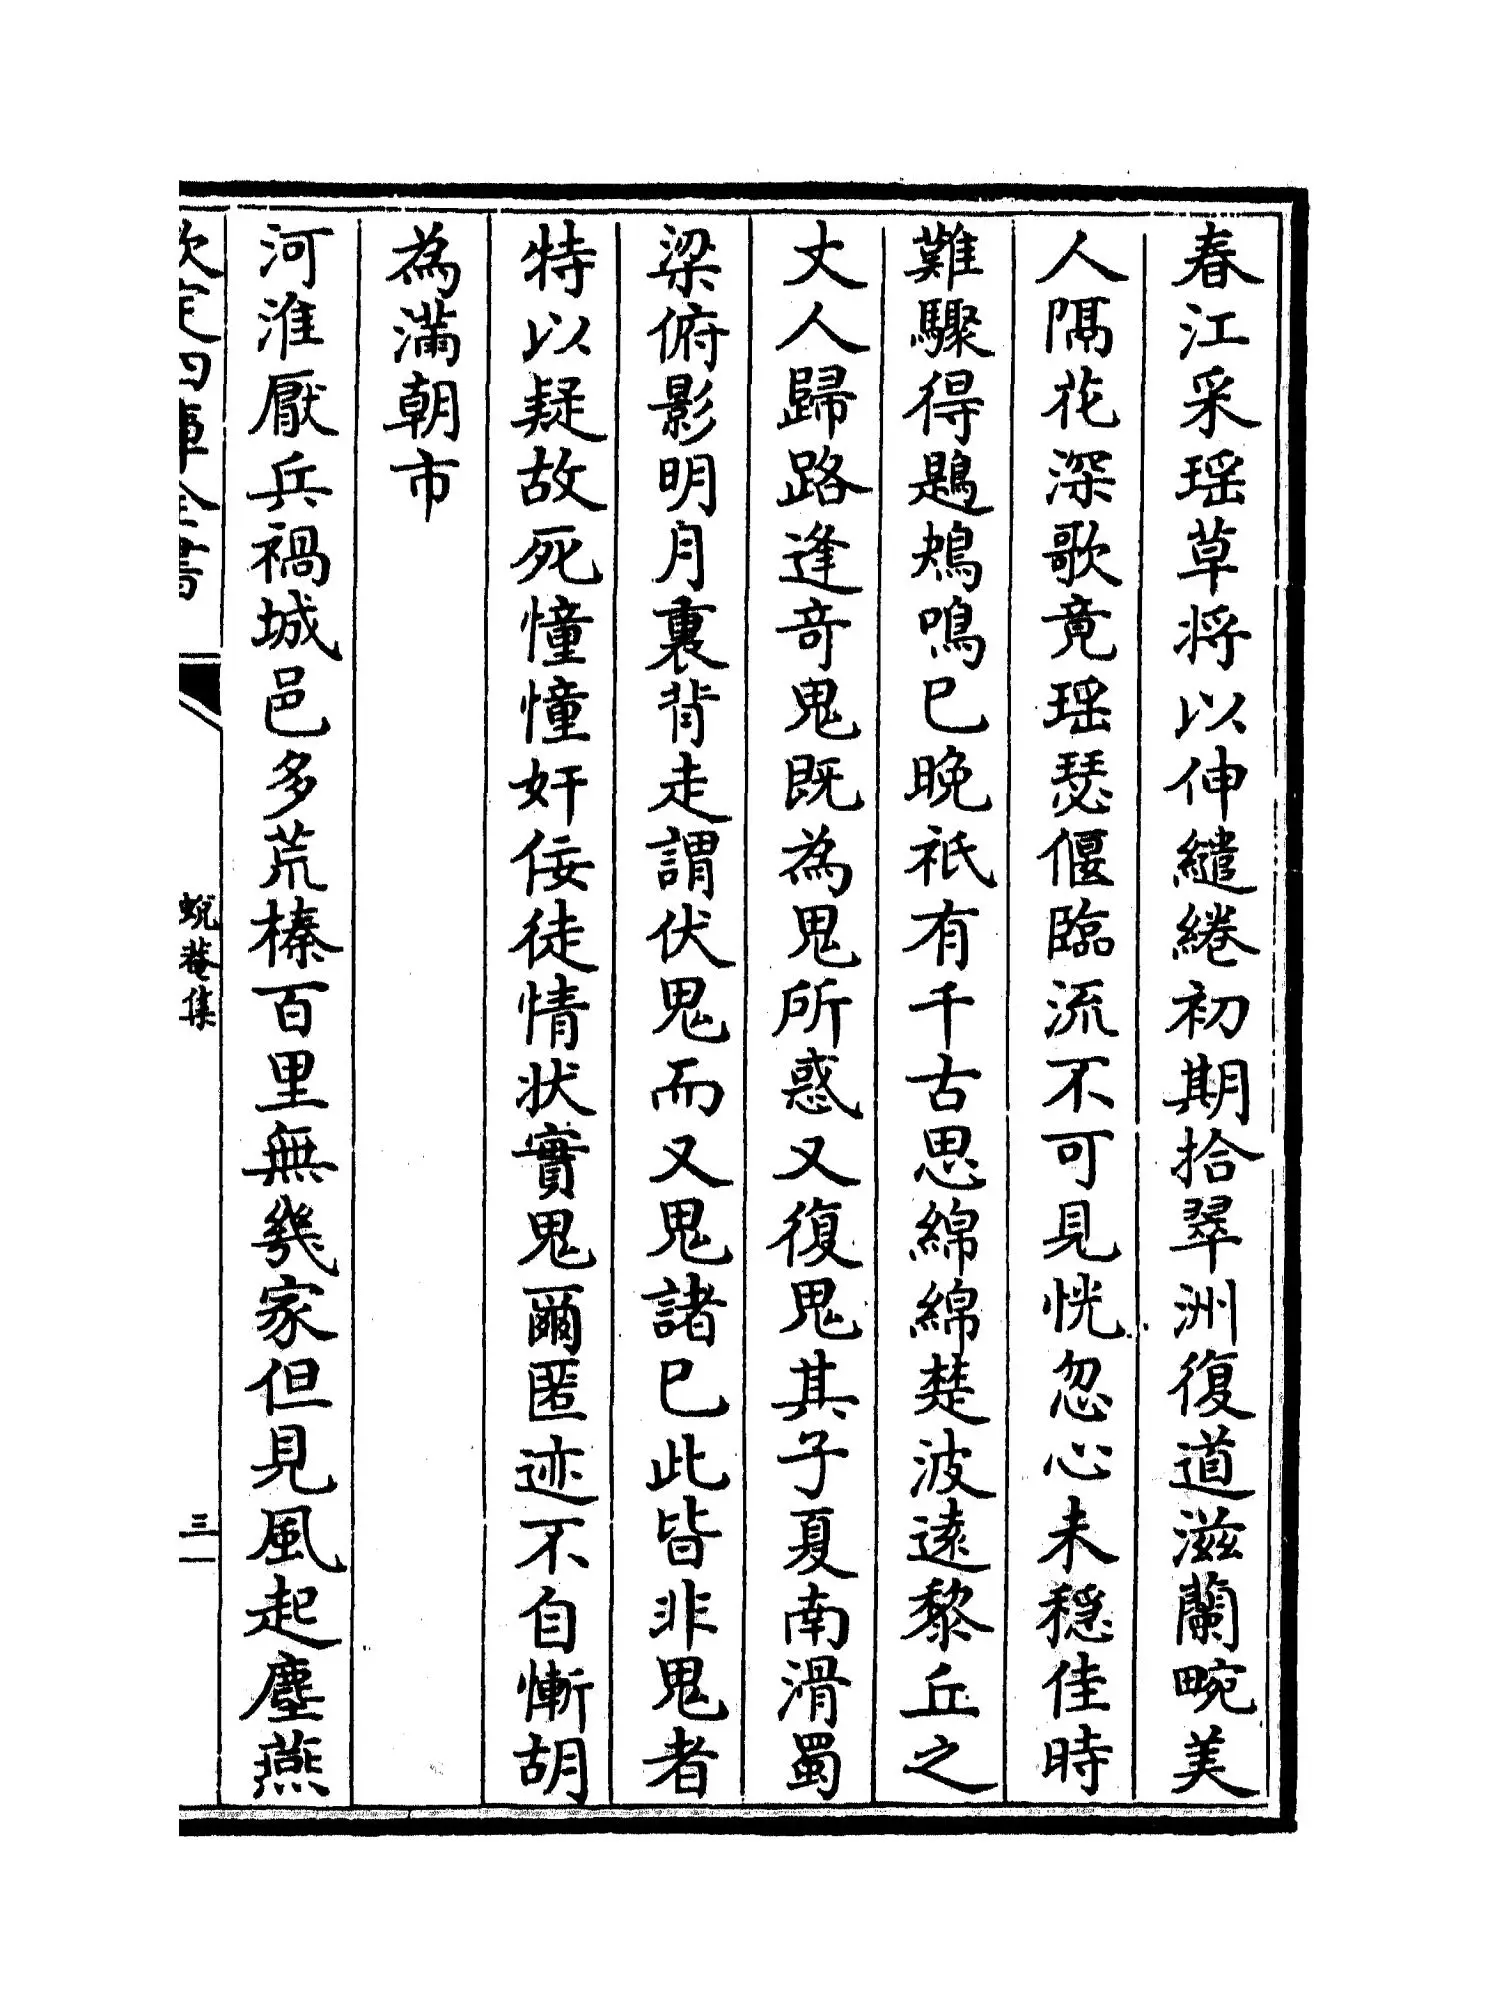 春江采瑶草将以伸繾綣初期拾翠洲復道滋蘭畹美
人隔花深歌竟瑶瑟偃臨流不可見恍忽心未穩佳時
難驟得鶗鴂鳴已晚祇有千古思綿綿楚波逺黎丘之
丈人歸路逢竒鬼既為鬼所惑又復鬼其子夏南滑蜀
梁俯影明月裏背走謂伏鬼而又鬼諸已此皆非鬼者
特以疑故死憧憧奸佞徒情状實鬼爾匿迹不自慚胡
為滿朝市
河淮厭兵禍城邑多荒榛百里無幾家但見風起塵燕
欽定四庫全書
蛻菴集
三